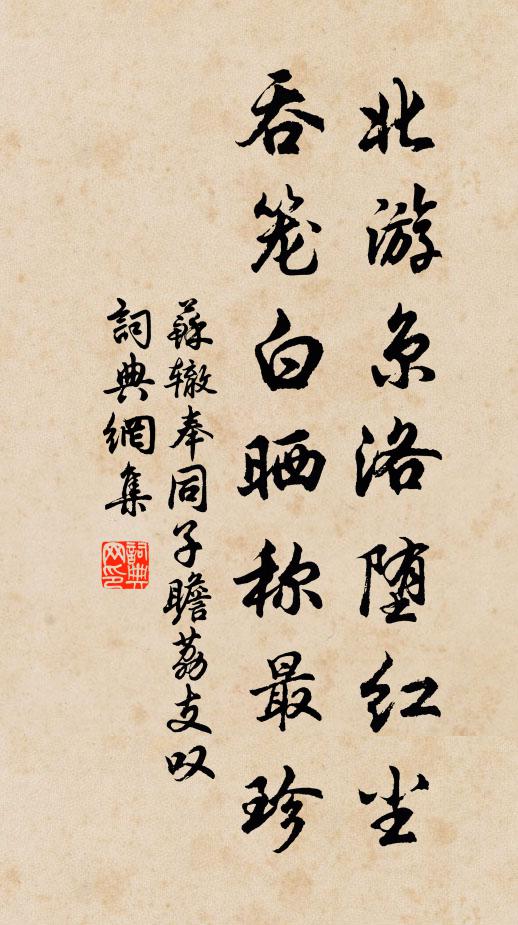 北游京洛堕红尘
吞笼白晒称最珍
蘇辙奉同子瞻荔支叹
詞典網集
詞典网印